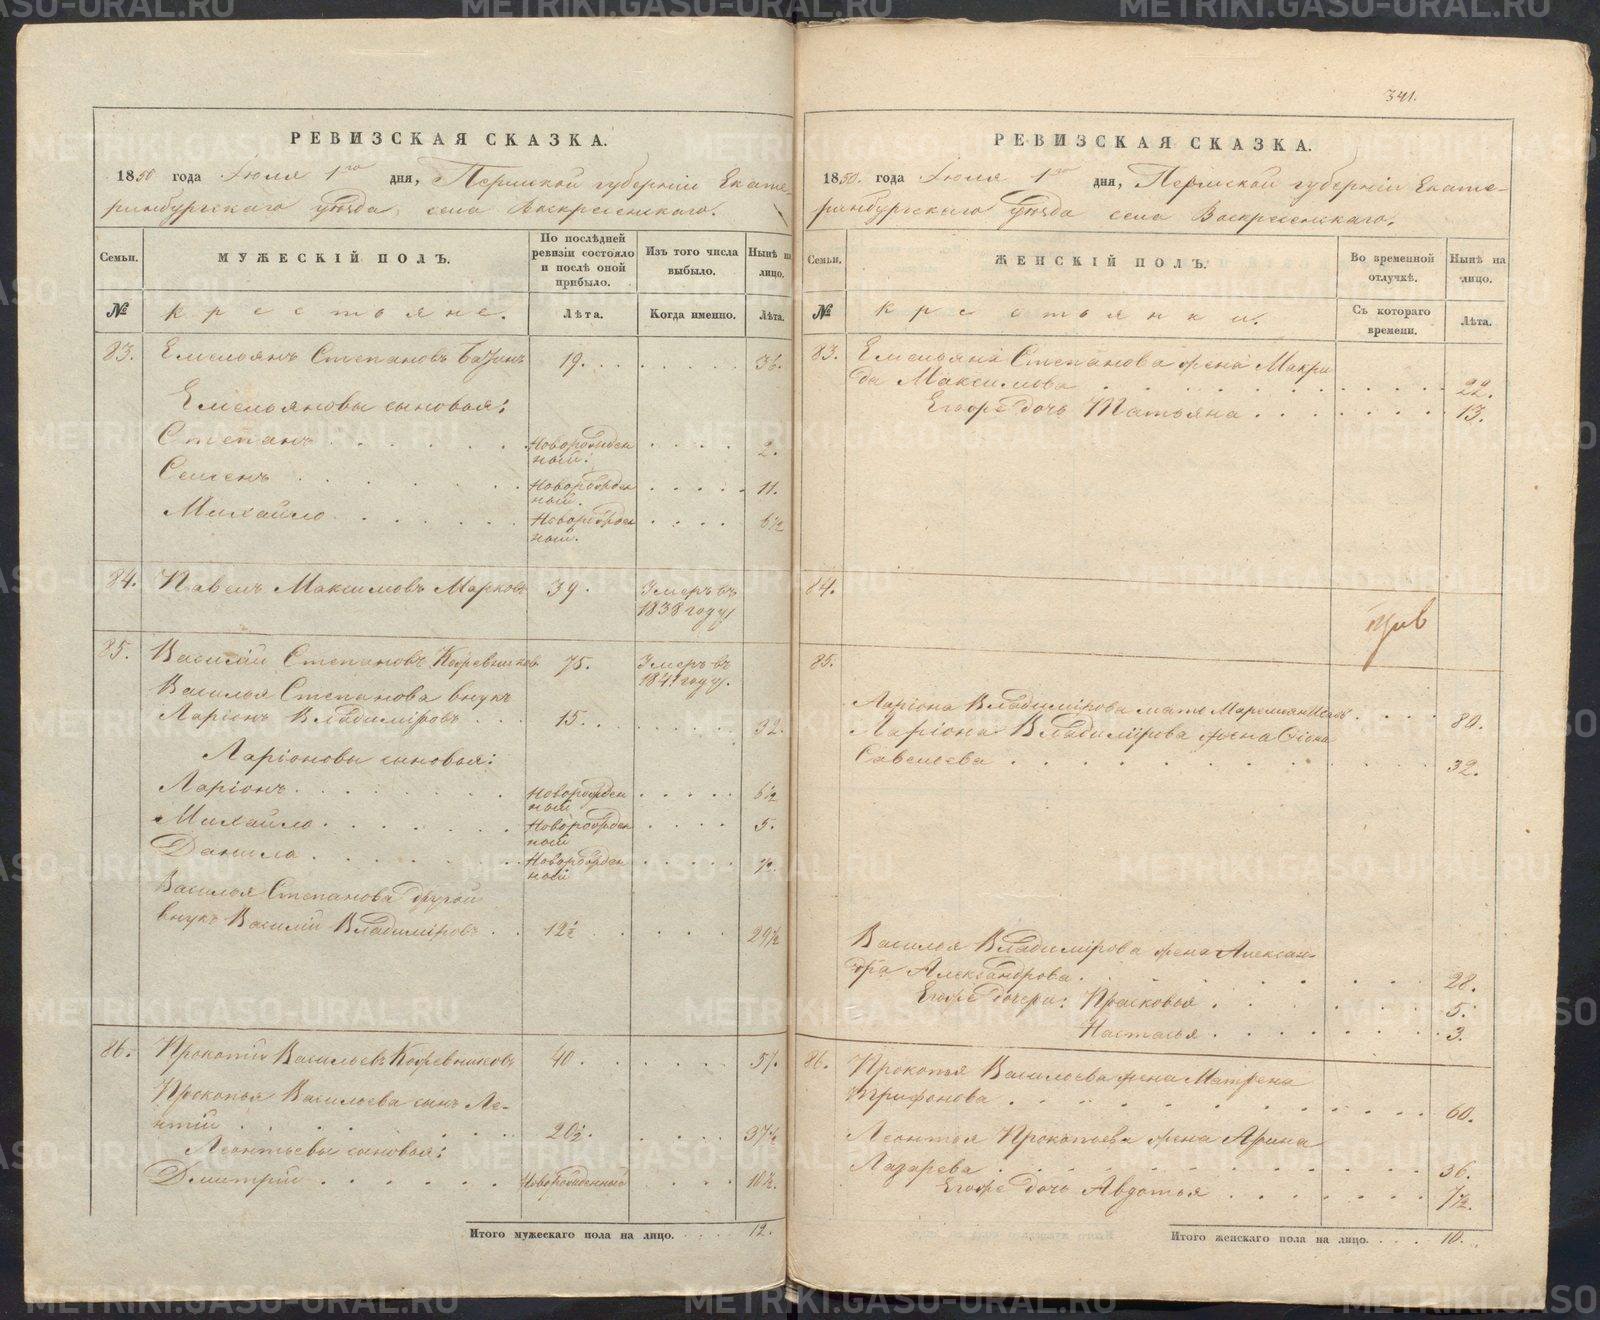 341.
РЕВИЗСКАЯ СКАЗКА.
1850 года Іюля 1го дня, Пермской губерніи Екате-
ринбургскаго уѣзда, села Воскресенскаго.
Семьи. МУЖЕСКІЙ ПОЛЪ. По послѣдней ревизіи состояло и послѣ оной прибыло. Изъ того числа выбыло. Нынѣ на лицо.
№ Крестьяне. Лѣта. Когда именно. Лѣта.
83. Емельянъ Степановъ 19.
Емельяновы сыновья:
Степанъ Новорожден 2.
ный.
Семенъ Новорожден 11.
ный.
Михайло Новорожден 6½
ный.
84. Павелъ Максимовъ Марковъ 39. Умеръ въ
1838 году
85. Василій Степановъ Кожевников 75. Умеръ въ
году.
Василья Степанова внукъ
Ларіонъ Владиміровъ 15. 32.
Ларіоновы сыновья:
Ларіонъ Новорожден 6½
ный
Михайло Новорожден 5.
ный
Данило Новорожден ½.
ный
Василья Степанова другой
внукъ Василій Владиміровъ 12½ 29½
86. Прокопій Васильевъ Кожевниковъ 40. 57.
Прокопья Васильева сынъ Ле-
нтій 20½. 37½
Леонтьевы сыновья:
Дмитрій Новорожденный 10½.
Итого мужескаго пола на лицо. 12.
РЕВИЗСКАЯ СКАЗКА.
1850. года Іюля 1го дня, Пермской губерніи Екате-
ринбургскаго уѣзда села Воскресенскаго.
Семьи. ЖЕНСКІЙ ПОЛЪ. Во временной отлучкѣ. Нынѣ на лицо.
№ Крестьянки. Съ котораго времени. Лѣта.
83. Емельяна Степанова жена Макри
да Максимова 22.
Егоже дочь Татьяна 13.
84.
85.
Ларіона Владимірова мать 80.
Ларіона Владимірова жена
Савельева 32.
Василья Владимірова жена Алексан-
дра Александрова 28.
Егоже дочери: Прасковья 5.
Настасья 3.
86. Прокопья Васильева жена Матрена
Трифонова 60.
Леонтья Прокопьева жена Арина
Лазарева 36.
Егоже дочь Авдотья 7½.
Итого женскаго пола на лицо. 10.
METRIKI.GASO-URAL.RU